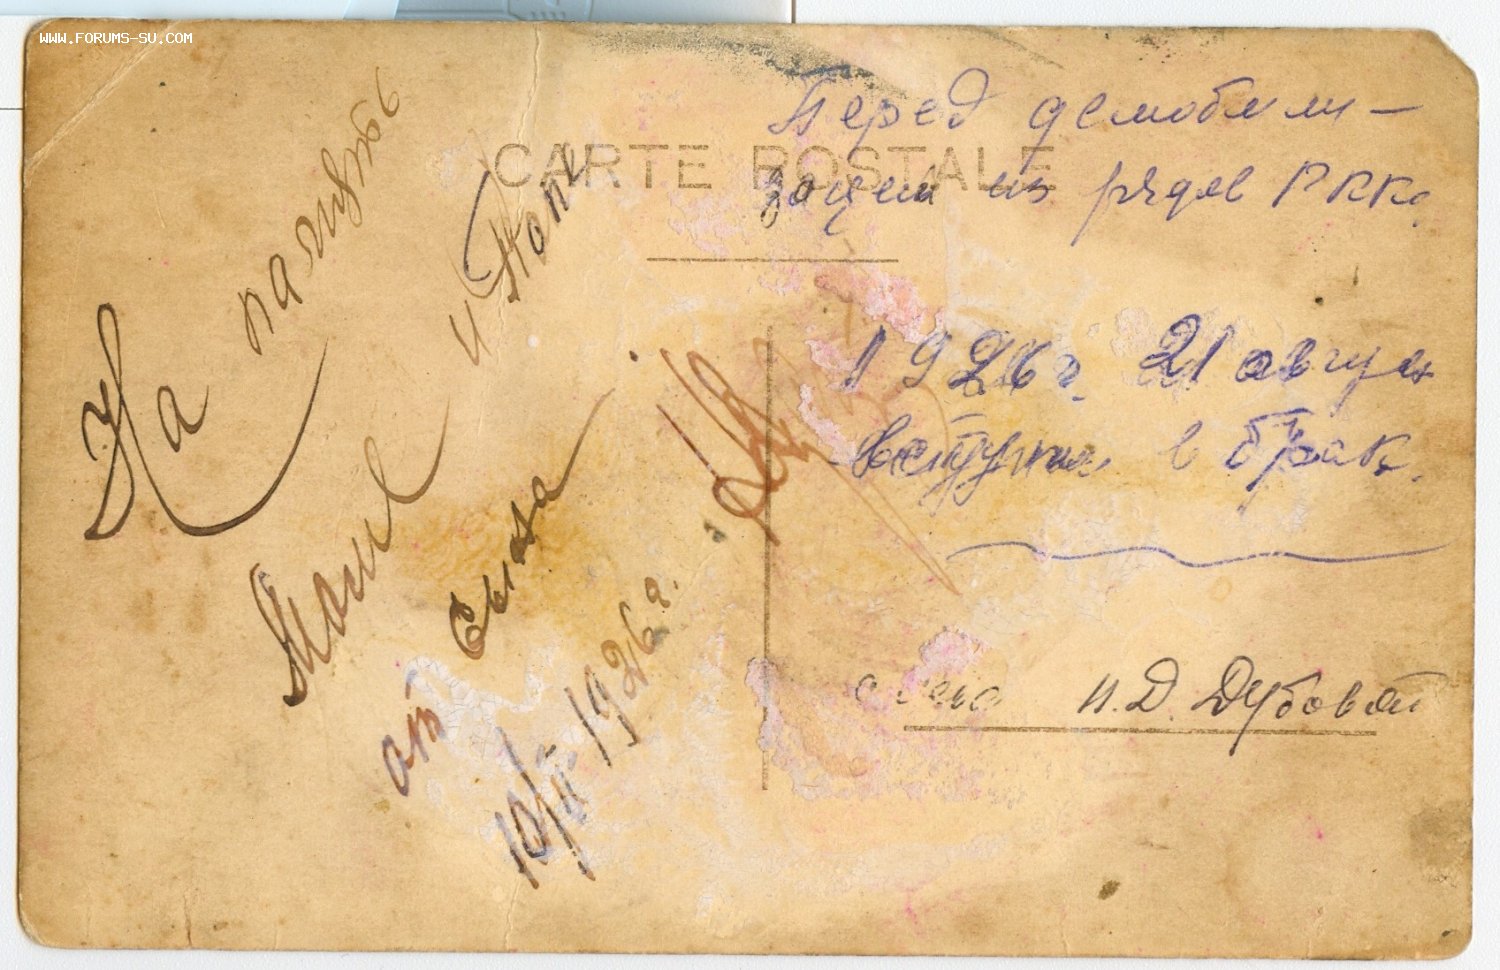 WWW.FORUMS-SU.COM
CARTE POSTALE
На память
Маме и Папе
от сына
10/II 1926 г.
Перед демобили-
зацией из рядов РККа
1926 г. 21 август
вступил в брак.
И. Д. Дубовой